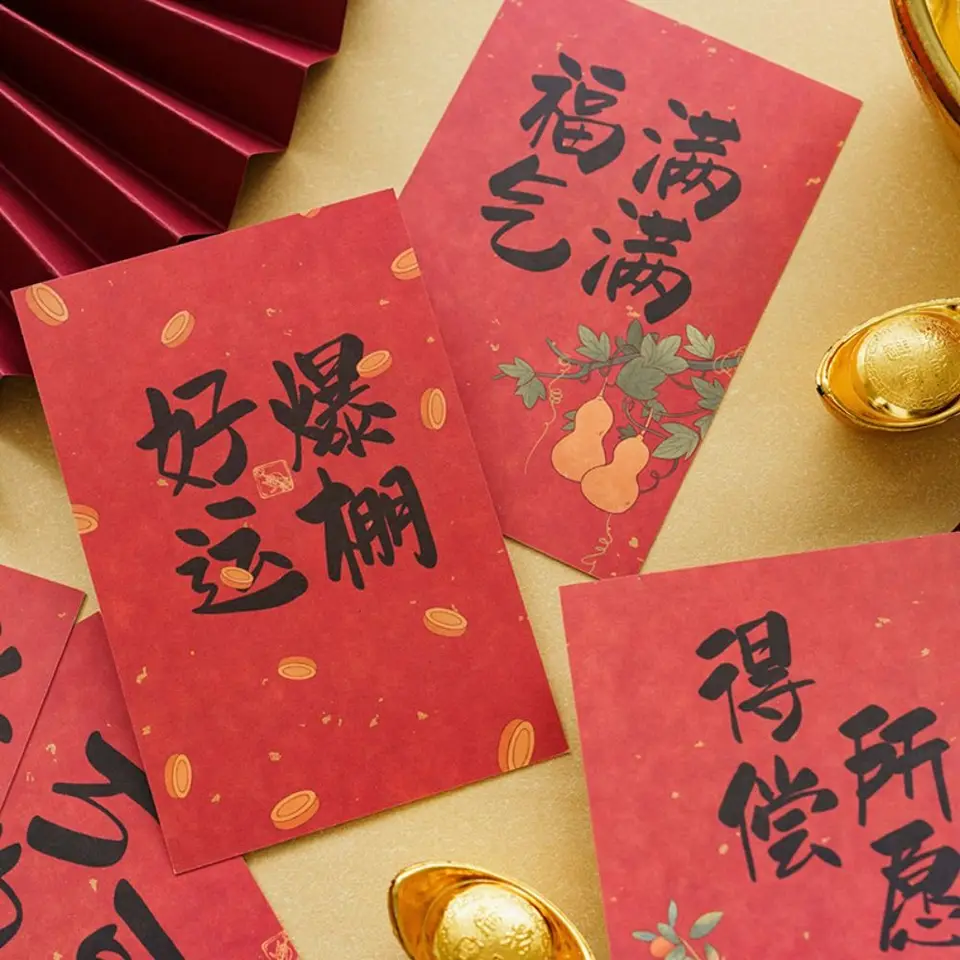 福气
满满
好运
爆棚
得偿
所愿